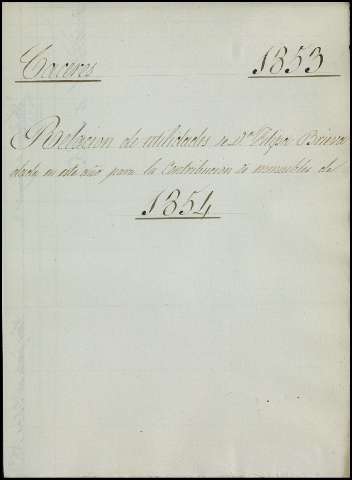 Caceres 1853
Relacion de utilidades de Dª Felipa Brieva
dada en este año para la Contribucion de inmuebles de
1854